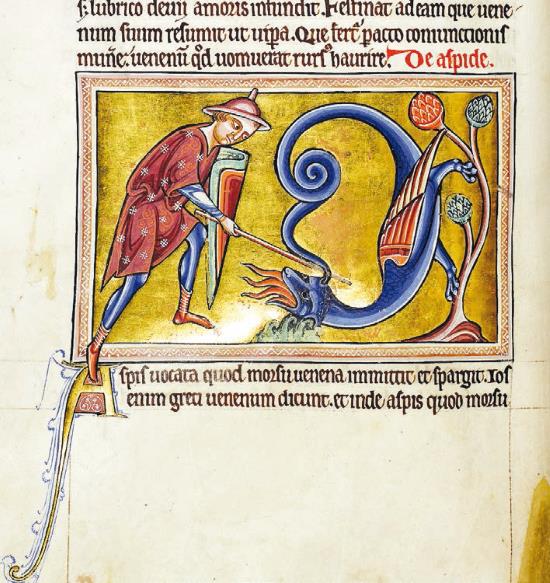 s; lubrico deuij amoris infundit. Festinat ad eam que uene
num suum resumit ut uipa. Que fert͛ pacto coniunctionis
mun̄e. uenenū qd̓ uomuerat rursꝰ haurire. De aspide.
Aspis uocata quod morsu uenena immittit et spargit. Ios
enim greci uenenum dicunt. et inde aspis quod morsu